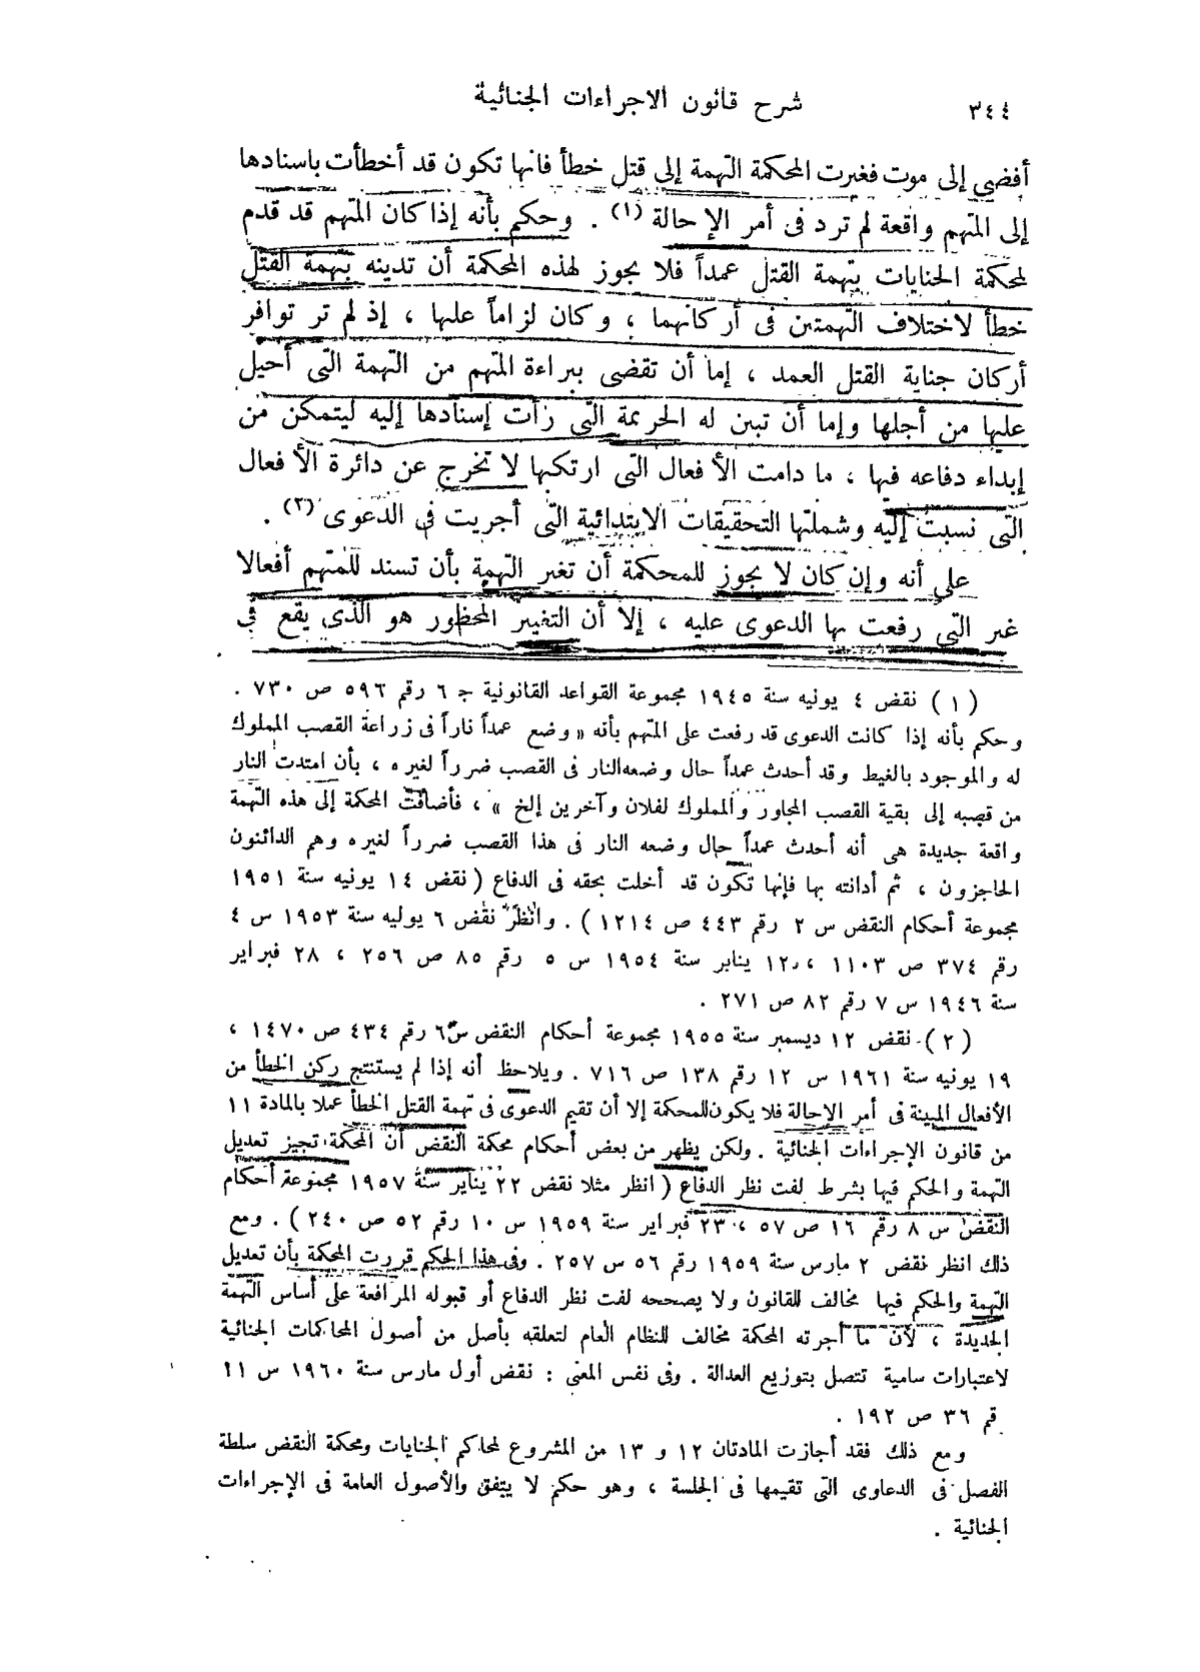 ٣٤٤
شرح قانون الاجراءات الجنائية
أفضى إلى موت فغيرت المحكمة التهمة إلى قتل خطأ فانها تكون قد أخطأت باسنادها
إلى المتهم واقعة لم ترد فى أمر الإحالة (١) . وحكم بأنه إذا كان المتهم قد قدم
لمحكمة الجنايات بتهمة القتل عمداً فلا يجوز لهذه المحكمة أن تدينه بتهمة القتل
خطأ لاختلاف التهمتين فى أركانهما ، وكان لزاماً عليها ، إذ لم تر توافر
أركان جناية القتل العمد ، إما أن تقضى ببراءة المتهم من التهمة التى أحيل
عليها من أجلها وإما أن تبين له الجريمة التى رأت إسنادها إليه ليتمكن من
إبداء دفاعه فيها ، ما دامت الأفعال التى ارتكبها لا تخرج عن دائرة الأفعال
التى نسبت إليه وشملتها التحقيقات الابتدائية التى أجريت فى الدعوى (٢) .
على أنه وإن كان لا يجوز للمحكمة أن تغير التهمة بأن تسند للمتهم أفعالا
غير التى رفعت بها الدعوى عليه ، إلا أن التغيير المحظور هو الذى يقع فى
(١) نقض ٤ يونيه سنة ١٩٤٥ مجموعة القواعد القانونية ج ٦ رقم ٥٩٦ ص ٧٣٠ .
وحكم بأنه إذا كانت الدعوى قد رفعت على المتهم بأنه « وضع عمداً ناراً فى زراعة القصب المملوك
له والموجود بالغيط وقد أحدث عمداً حال وضعه النار فى القصب ضرراً لغيره ، بأن امتدت النار
من قصبه إلى بقية القصب المجاور والمملوك لفلان وآخرين إلخ » ، فأضافت المحكة إلى هذه التهمة
واقعة جديدة هى أنه أحدث عمداً حال وضعه النار فى هذا القصب ضرراً لغيره وهم الدائنون
الحاجزون ، ثم أدانته بها فإنها تكون قد أخلت بحقه فى الدفاع ( نقض ١٤ يونيه سنة ١٩٥١
مجموعة أحكام النقض س ٢ رقم ٤٤٣ ص ١٢١٤ ) . وانظر نقض ٦ يوليه سنة ١٩٥٣ س ٤
رقم ٣٧٤ ص ١١٠٣ ، ١٢ يناير سنة ١٩٥٤ س ٥ رقم ٨٥ ص ٢٥٦ ، ٢٨ فبراير
سنة ١٩٤٦ س ٧ رقم ٨٢ ص ٢٧١ .
(٢) نقض ١٢ ديسمبر سنة ١٩٥٥ مجموعة أحكام النقض س ٦ رقم ٤٣٤ ص ١٤٧٠ ،
١٩ يونيه سنة ١٩٦١ س ١٢ رقم ١٣٨ ص ٧١٦ . ويلاحظ أنه إذا لم يستنتج ركن الخطأ من
الأفعال المبينة فى أمر الإحالة فلا يكون للمحكمة إلا أن تقيم الدعوى فى تهمة القتل الخطأ عملا بالمادة ١١
من قانون الإجراءات الجنائية . ولكن يظهر من بعض أحكام محكمة النقض أن المحكمة تجيز تعديل
التهمة والحكم فيها بشرط لفت نظر الدفاع ( انظر مثلا نقض ٢٢ يناير سنة ١٩٥٧ مجموعة أحكام
النقض س ٨ رقم ١٦ ص ٥٧ ، ٢٣ فبراير سنة ١٩٥٩ س ١٠ رقم ٥٢ ص ٢٤٠ ) . ومع
ذلك انظر نقض ٢ مارس سنة ١٩٥٩ رقم ٥٦ س ٢٥٧ . وفى هذا الحكم قررت المحكمة بأن تعديل
التهمة والحكم فيها مخالف للقانون ولا يصححه لفت نظر الدفاع أو قبوله المرافعة على أساس التهمة
الجديدة ، لأن ما أجرته المحكمة مخالف للنظام العام لتعلقه بأصل من أصول المحاكمات الجنائية
لاعتبارات سامية تتصل بتوزيع العدالة . وفى نفس المعنى : نقض أول مارس سنة ١٩٦٠ س ١١
قم ٣٦ ص ١٩٢ .
ومع ذلك فقد أجازت المادتان ١٢ و ١٣ من المشروع لمحاكم الجنايات ومحكمة النقض سلطة
الفصل فى الدعاوى التى تقيمها فى الجلسة ، وهو حكم لا يتفق والأصول العامة فى الإجراءات
الجنائية .